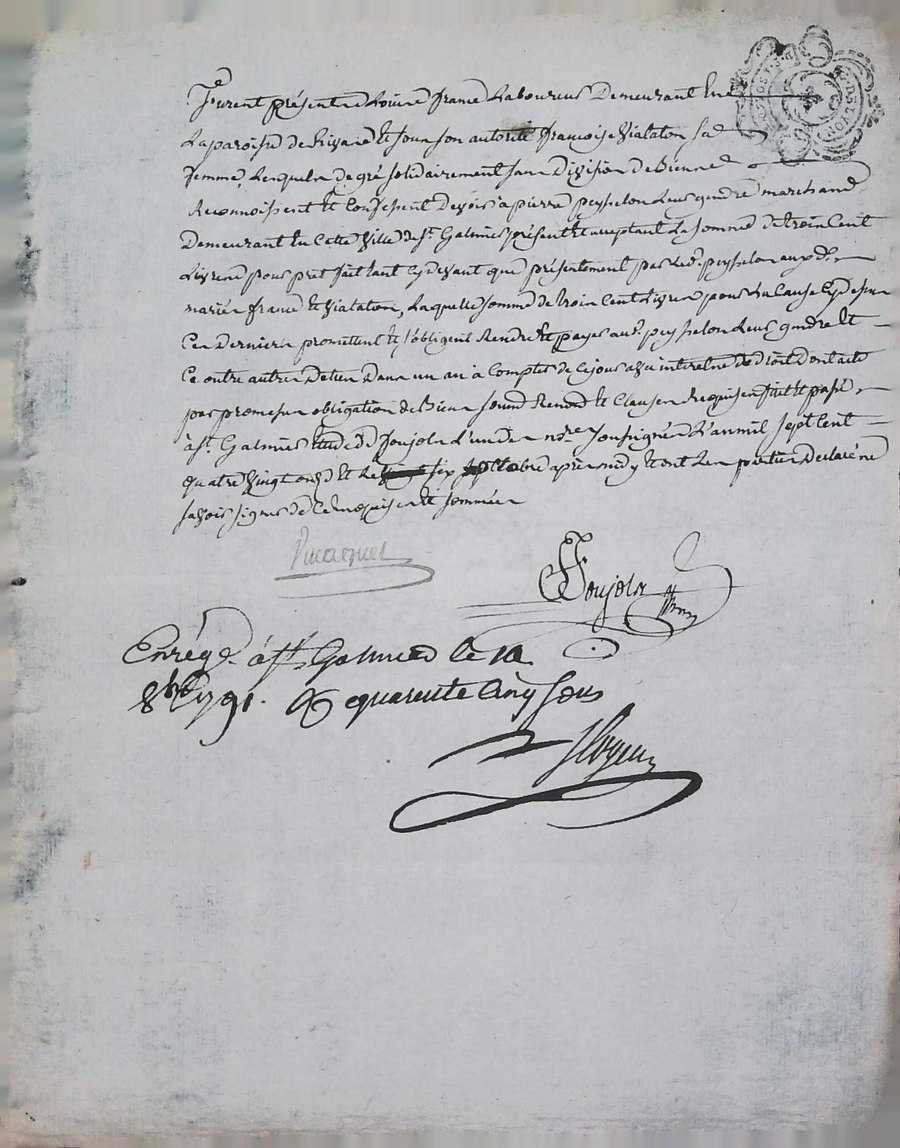 furent présents Louis france Laboureur Demeurant En
La paroisse de Rivas Et sous son autorité francoise Violaton sa
femme, Lesquels de gré solidairement sans Division de Biens
Reconnoissent et Confessent Devoir a pierre peysselon Leur gendre marchand
Demeurant En Cette Ville de St. Galmier présent Et acceptant La somme de trois Cent
Livres pour pret fait tant Cydevant que présentement par Led. peysselon auxd.
mariés france Et Violaton, Laquelle somme de trois Cent Livres pour La Cause Cydessus
Ces Derniers promettent Et s'obligent Rendre Et payer aud. peysselon Leur gendre Et
Ce outre autres Dettes Dans un an à Compter de Cejour avec interets de Droit Dont acte
par promesses obligation de Biens soumis Renonc Et Clauses Requises fait Et passé
à St. Galmier Etude de Soujols L'un des nres. soussignés L'an mil sept Cent
quatre Vingt onze Et Le six octobre après midy Et ont Les parties Declaré ne
savoir signer de Ce Enquises Et sommées
Soujols
Enrége. à St. Galmier le 10
8bre 1791. R quarente Cinq sous